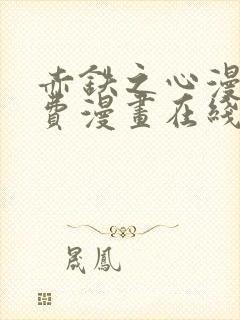 赤鉄之心漫
費漫畫在綫
晟鳳